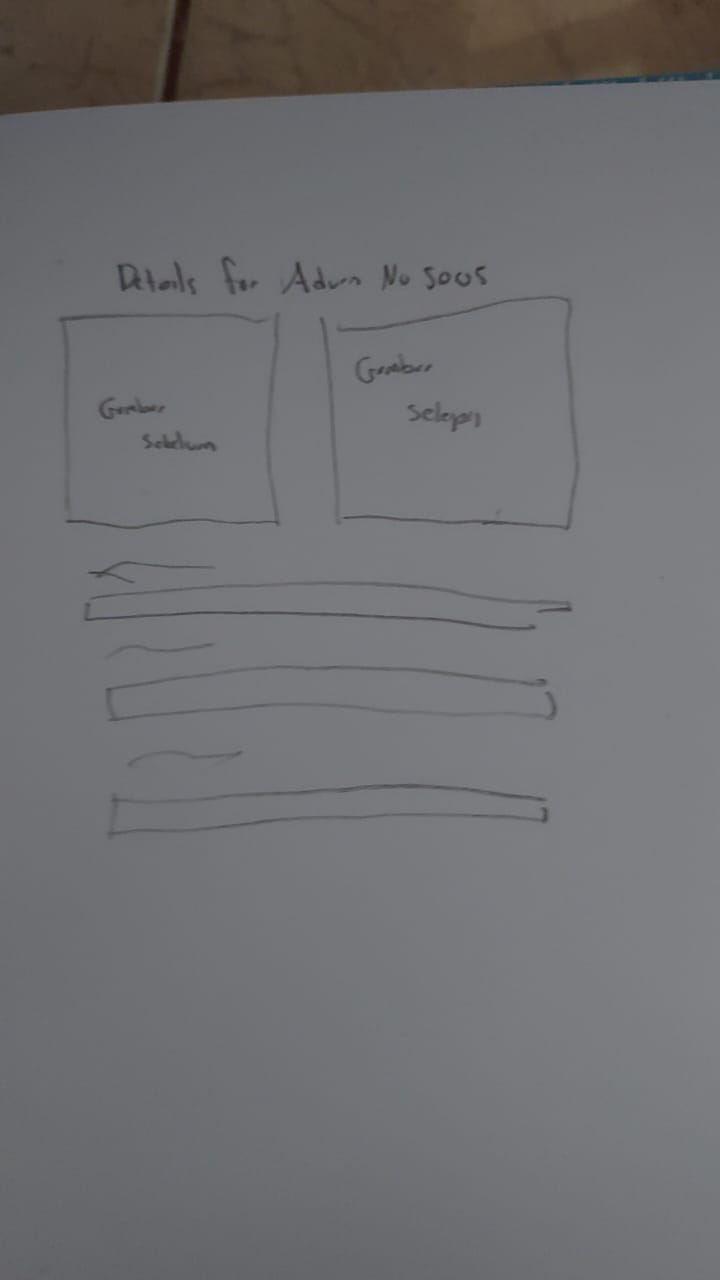 Details for Aduan No 5005
Gambar
Sebelum
Gambar
Selepas